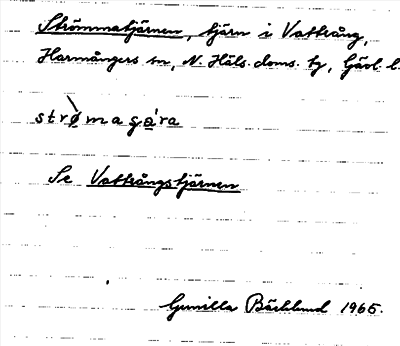 Strömmatjärnen, tjärn i Vattrång,
Harmångers sn, N. Häls. doms. tg, Gävl. l.
strø̀magá̀ra
Se Vattrångstjärnen
Gunilla Bäcklund 1965.